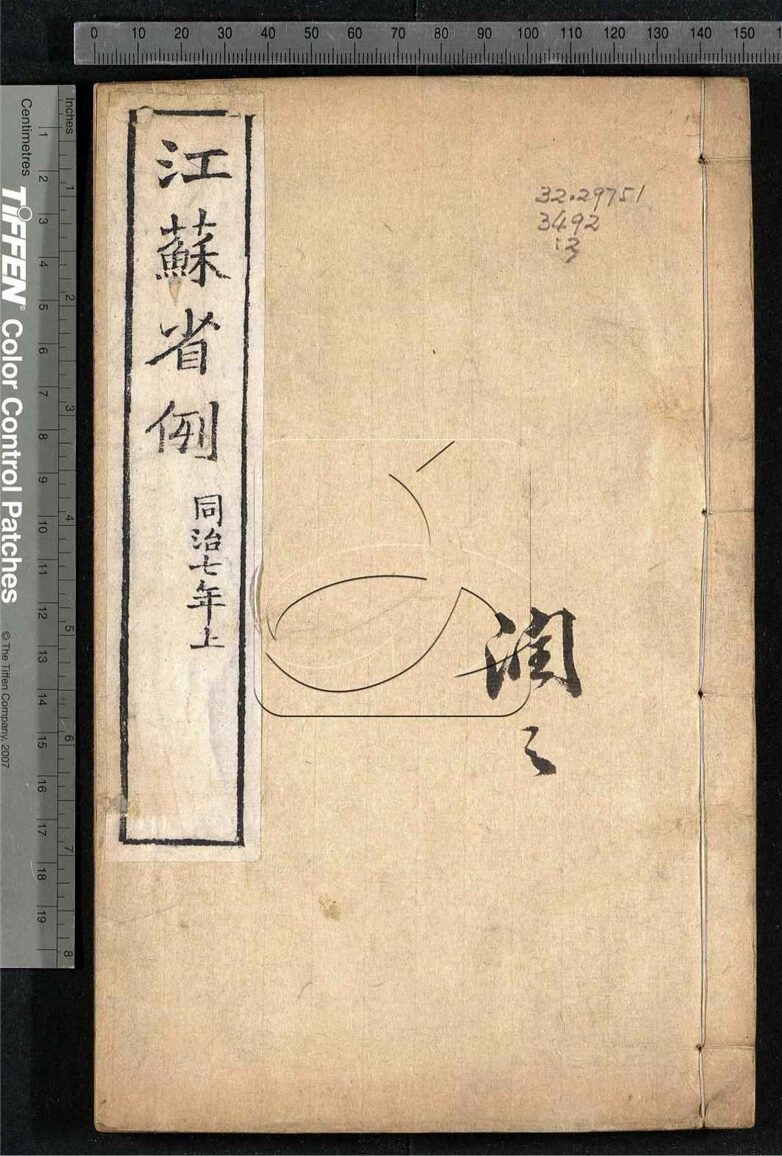 0 10 20 30 40 50 60 70 80 90 100 110 120 130 140 150
Inches
1 2 3 4 5 6 7 8
Centimetres
1 2 3 4 5 6 7 8 9 10 11 12 13 14 15 16 17 18 19
TIFFEN® Color Control Patches
© The Tiffen Company, 2007
江蘇省例
同治七年上
32.29751
3492
:3
潤